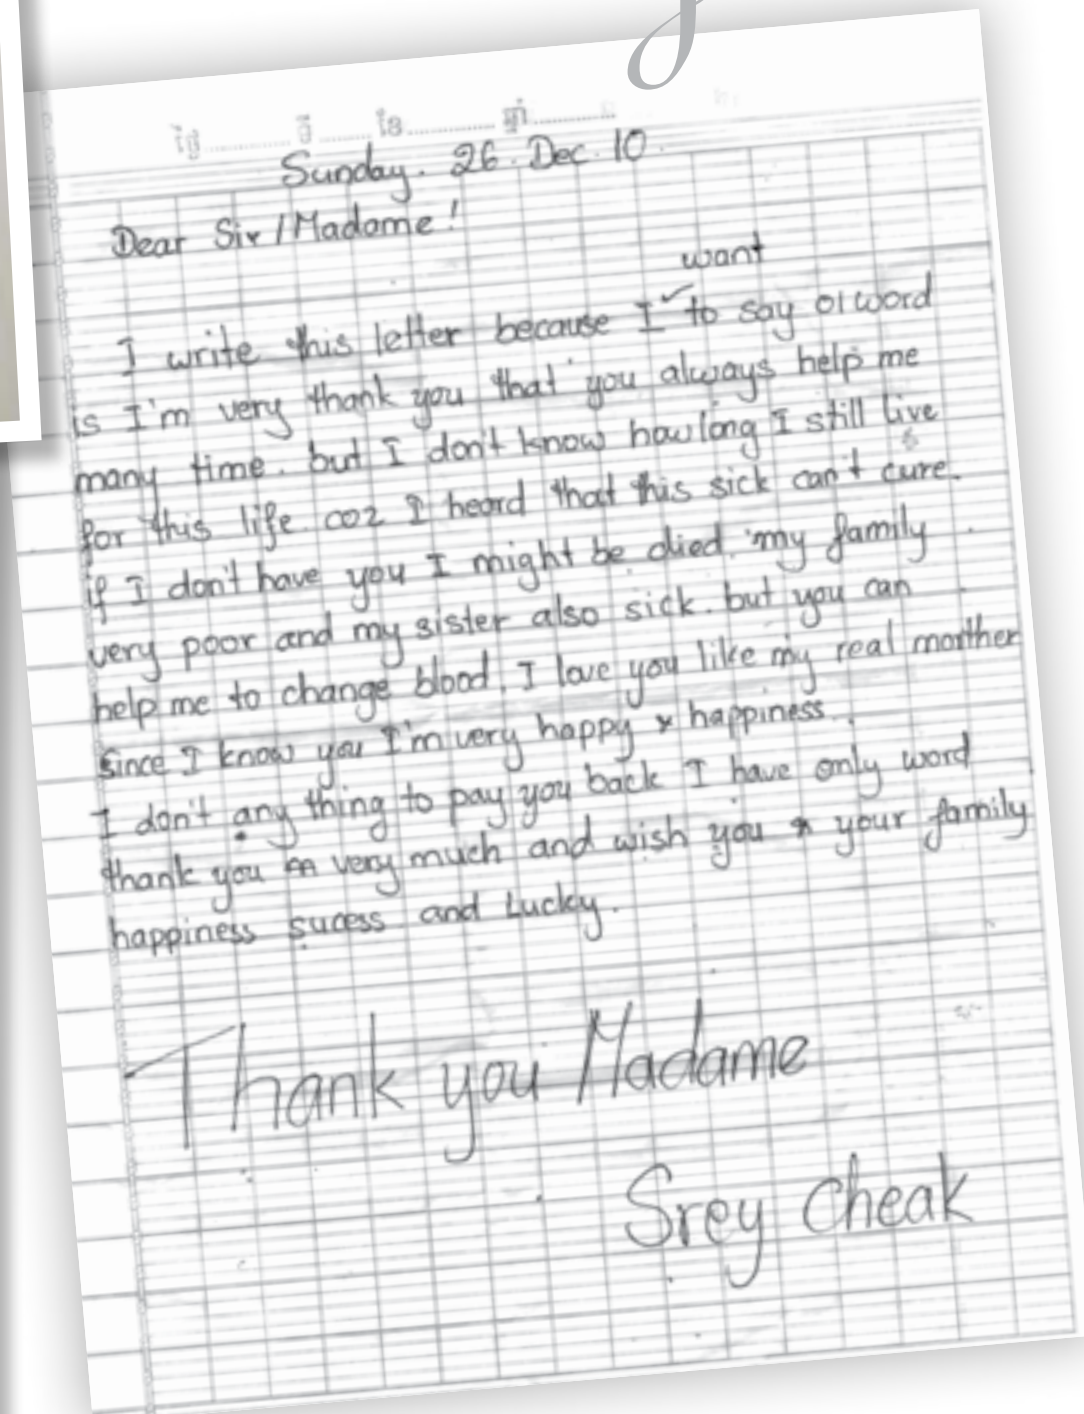 ថ្ងៃ............ទី........ខែ..............ឆ្នាំ.............
Sunday. 26. Dec. 10.
Dear Sir / Madame !
want
I write this letter because I ✓ to say 01 word
is I'm very thank you that you always help me
many time. but I don't know how long I still live
for this life coz I heard that this sick can't cure.
if I don't have you I might be died. my family
very poor and my sister also sick. but you can
help me to change blood. I love you like my real morther
Since I know you I'm very happy & happiness.
I don't any thing to pay you back I have only word
thank you very much and wish you & your family
happiness sucess and Lucky.
Thank you Madame
Srey Cheak